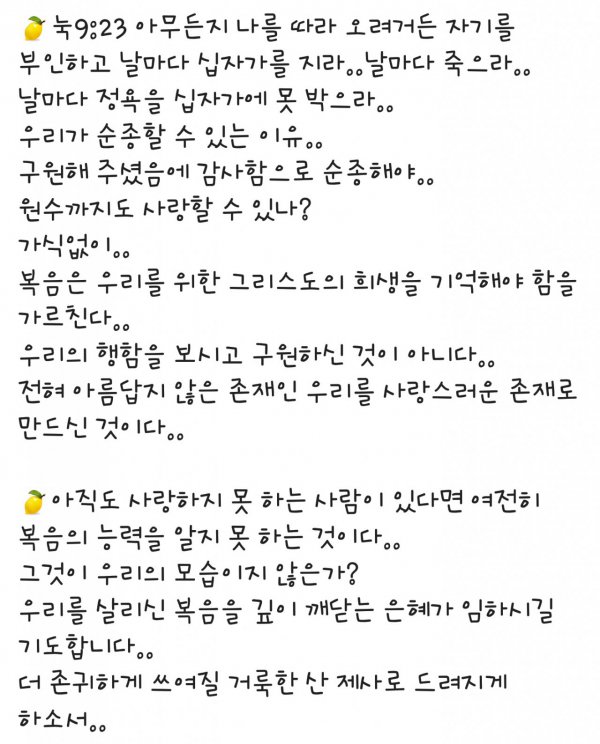 🍋눅9:23 아무든지 나를 따라 오려거든 자기를
부인하고 날마다 십자가를 지라..날마다 죽으라..
날마다 정욕을 십자가에 못 박으라..
우리가 순종할 수 있는 이유..
구원해 주셨음에 감사함으로 순종해야..
원수까지도 사랑할 수 있나?
가식없이..
복음은 우리를 위한 그리스도의 희생을 기억해야 함을
가르친다..
우리의 행함을 보시고 구원하신 것이 아니다..
전혀 아름답지 않은 존재인 우리를 사랑스러운 존재로
만드신 것이다..
🍋아직도 사랑하지 못 하는 사람이 있다면 여전히
복음의 능력을 알지 못 하는 것이다..
그것이 우리의 모습이지 않은가?
우리를 살리신 복음을 깊이 깨닫는 은혜가 임하시길
기도합니다..
더 존귀하게 쓰여질 거룩한 산 제사로 드려지게
하소서..